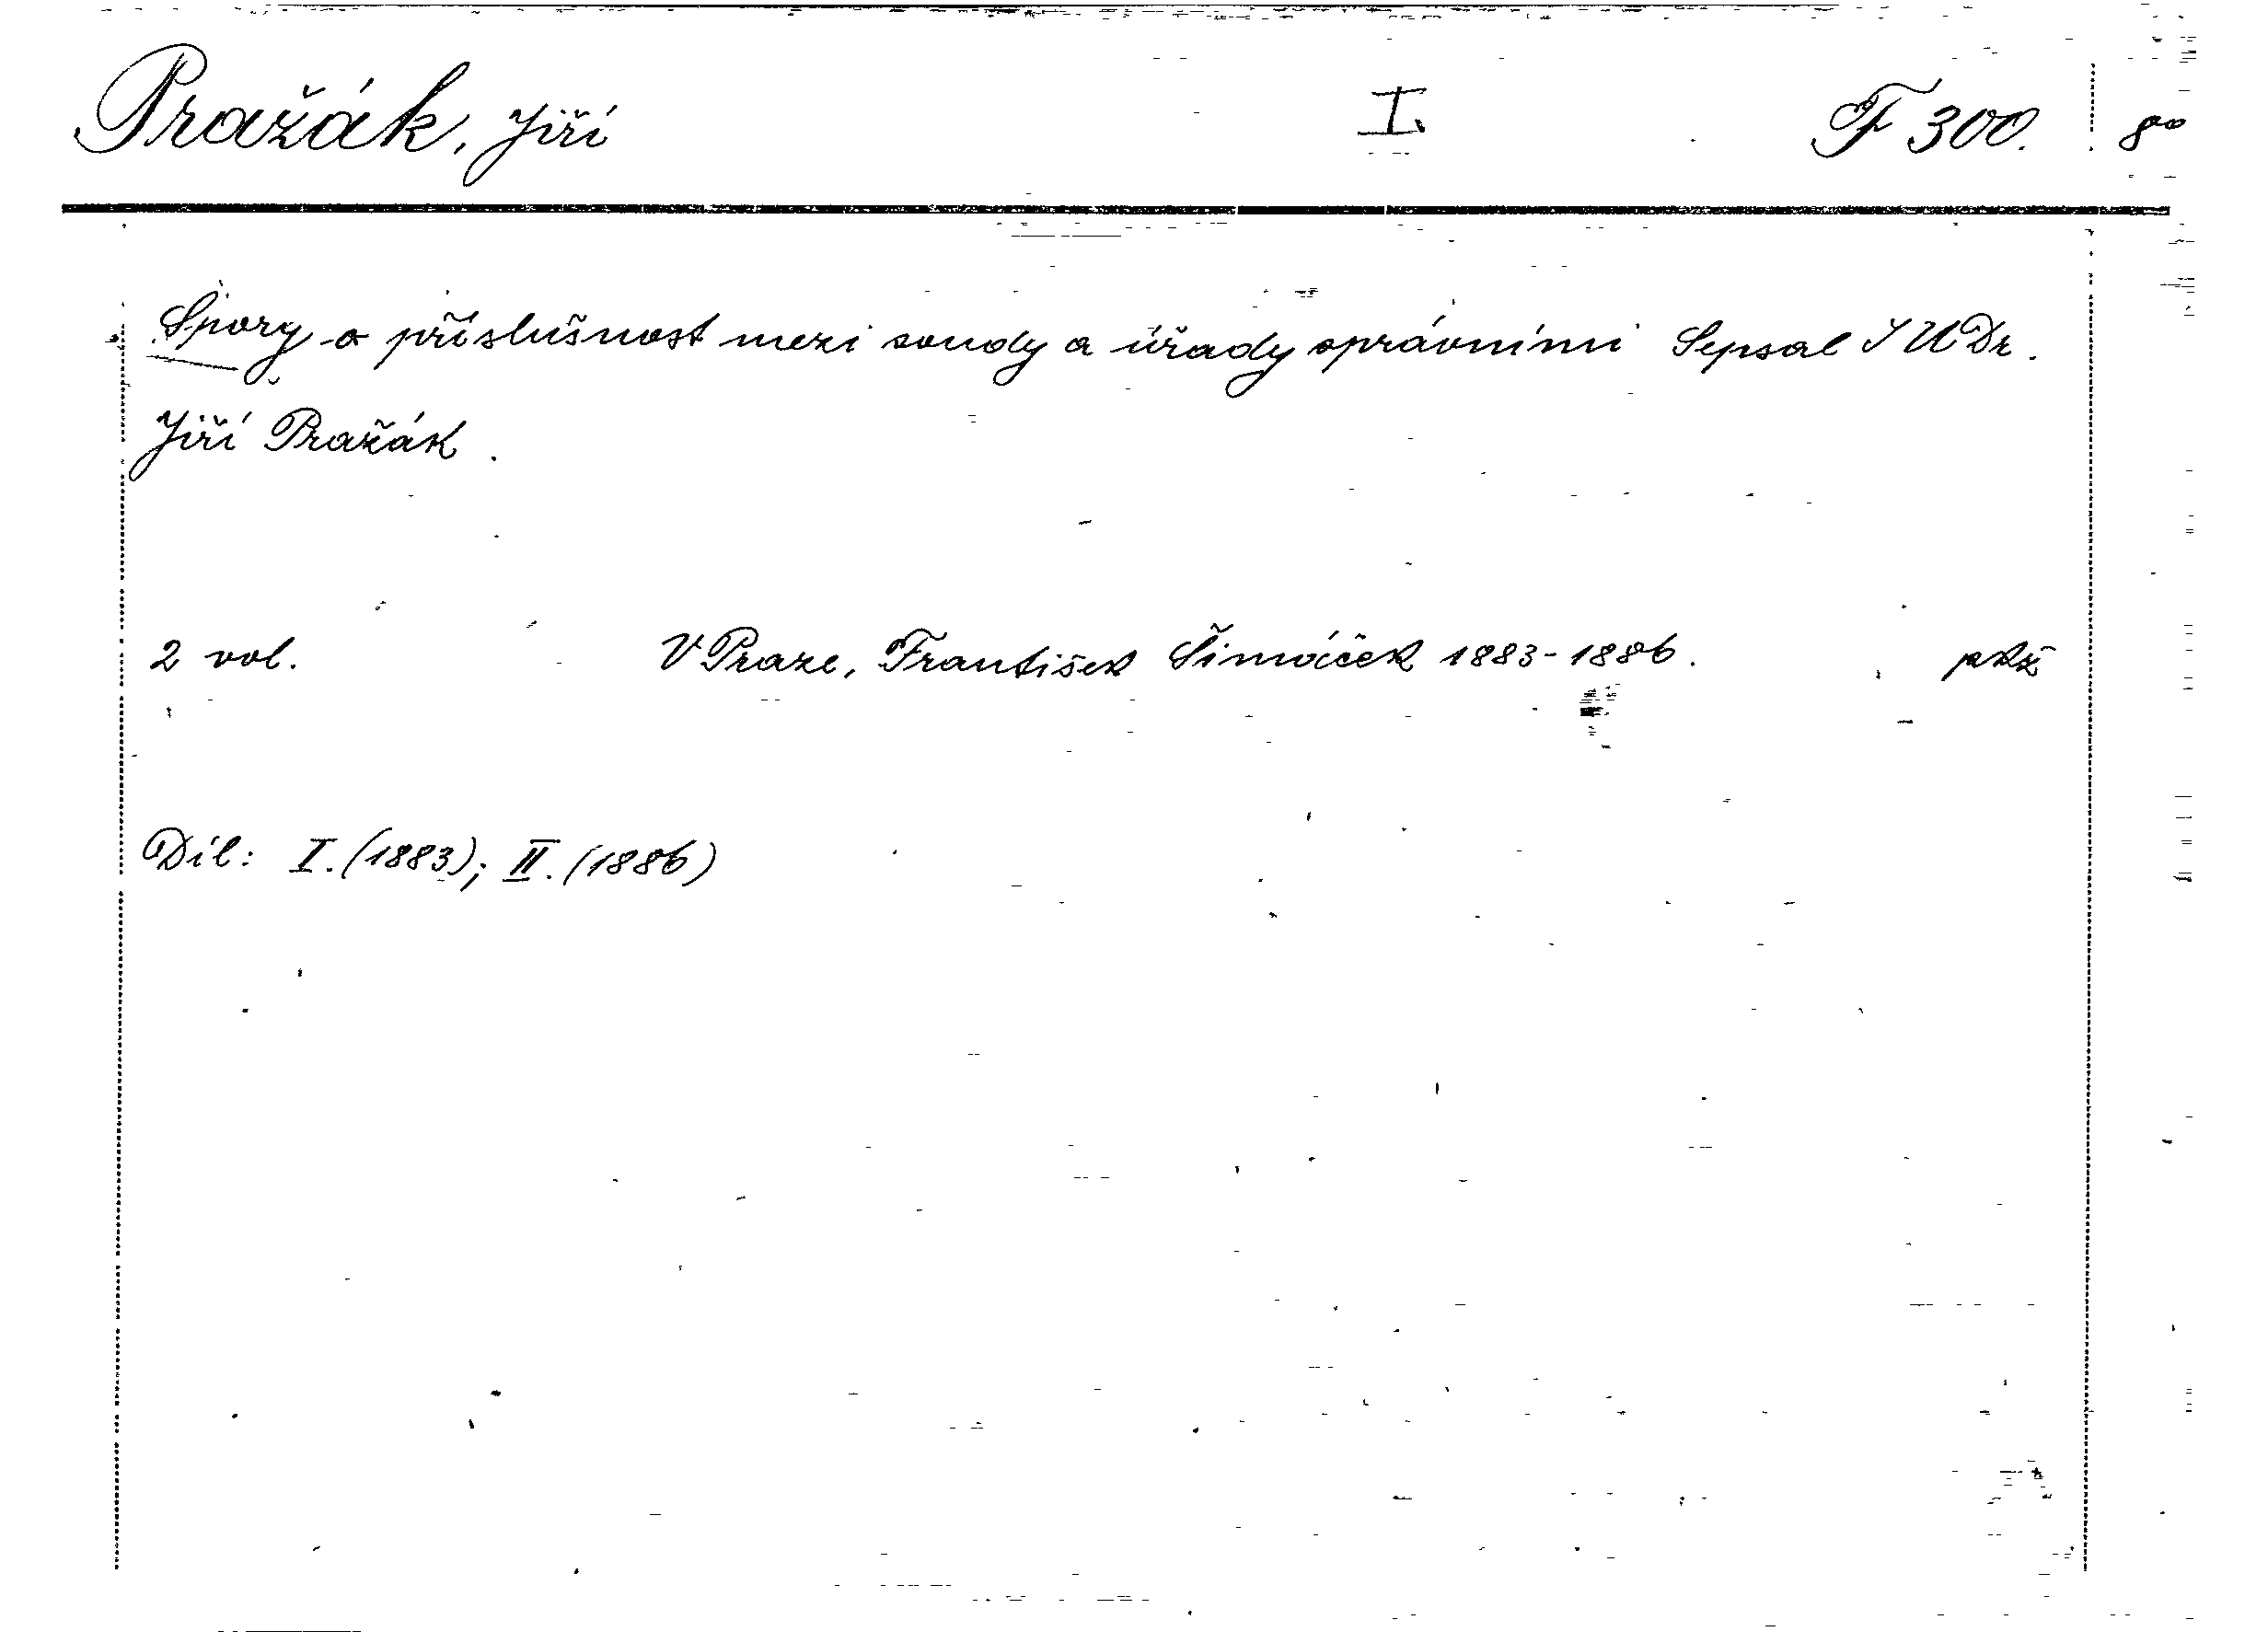 Pražák, Jiří I. F 300. 8°
Spory o příslušnost mezi soudy a úřady správními Sepsal JUDr.
Jiří Pražák.
2 vol. V Praze, František Šimáček 1883-1886. pkž
Díl: I. (1883); II. (1886)